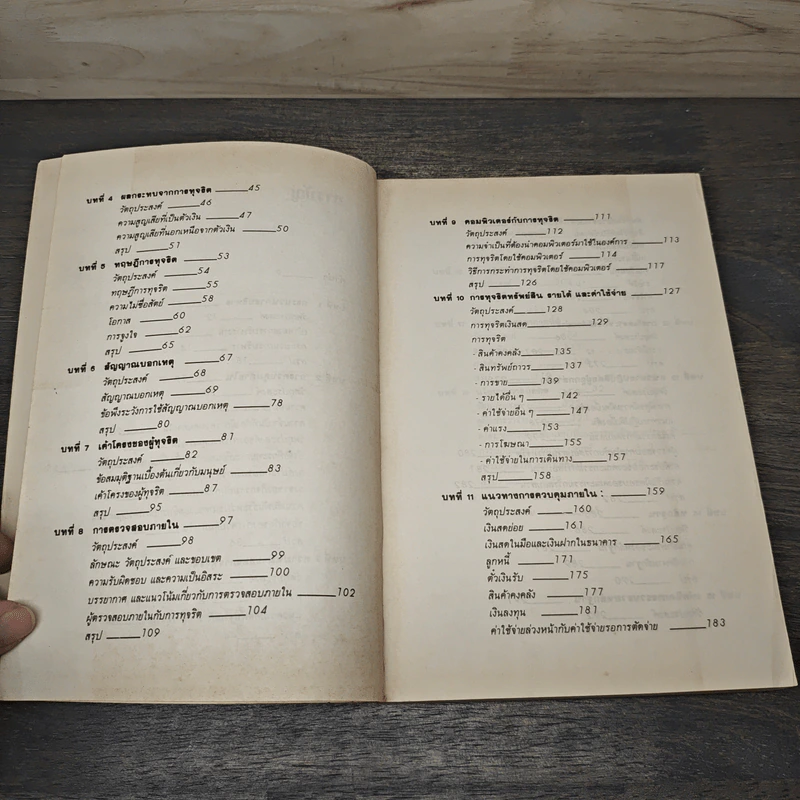 บทที่ 4 ผลกระทบจากการทุจริต ______45
วัตถุประสงค์ ______46
ความสูญเสียที่เป็นตัวเงิน ______47
ความสูญเสียที่นอกเหนือจากตัวเงิน ______50
สรุป ______51
บทที่ 5 ทฤษฎีการทุจริต ______53
วัตถุประสงค์ ______54
ทฤษฎีการทุจริต ______55
ความไม่ซื่อสัตย์ ______58
โอกาส ______60
การจูงใจ ______62
สรุป ______65
บทที่ 6 สัญญาณบอกเหตุ ______67
วัตถุประสงค์ ______68
สัญญาณบอกเหตุ ______69
ข้อพึงระวังการใช้สัญญาณบอกเหตุ ______78
สรุป ______80
บทที่ 7 เค้าโครงของผู้ทุจริต ______81
วัตถุประสงค์ ______82
ข้อสมมุติฐานเบื้องต้นเกี่ยวกับมนุษย์ ______83
เค้าโครงของผู้ทุจริต ______87
สรุป ______95
บทที่ 8 การตรวจสอบภายใน ______97
วัตถุประสงค์ ______98
ลักษณะ วัตถุประสงค์ และขอบเขต ______99
ความรับผิดชอบ และความเป็นอิสระ ______100
บรรยากาศ และแนวโน้มเกี่ยวกับการตรวจสอบภายใน ______102
ผู้ตรวจสอบภายในกับการทุจริต ______104
สรุป ______109
บทที่ 9 คอมพิวเตอร์กับการทุจริต ______111
วัตถุประสงค์ ______112
ความจำเป็นที่ต้องนำคอมพิวเตอร์มาใช้ในองค์การ ______113
การทุจริตโดยใช้คอมพิวเตอร์ ______114
วิธีการกระทำการทุจริตโดยใช้คอมพิวเตอร์ ______117
สรุป ______126
บทที่ 10 การทุจริตทรัพย์สิน รายได้ และค่าใช้จ่าย ______127
วัตถุประสงค์ ______128
การทุจริตเงินสด ______129
การทุจริต
- สินค้าคงคลัง ______135
- สินทรัพย์ถาวร ______137
- การขาย ______139
- รายได้อื่น ๆ ______142
- ค่าใช้จ่ายอื่น ๆ ______147
- ค่าแรง ______153
- การโฆษณา ______155
- ค่าใช้จ่ายในการเดินทาง ______157
สรุป ______158
บทที่ 11 แนวทางการควบคุมภายใน : ______159
วัตถุประสงค์ ______160
เงินสดย่อย ______161
เงินสดในมือและเงินฝากในธนาคาร ______165
ลูกหนี้ ______171
ตั๋วเงินรับ ______175
สินค้าคงคลัง ______177
เงินลงทุน ______181
ค่าใช้จ่ายล่วงหน้ากับค่าใช้จ่ายรอการตัดจ่าย ______183